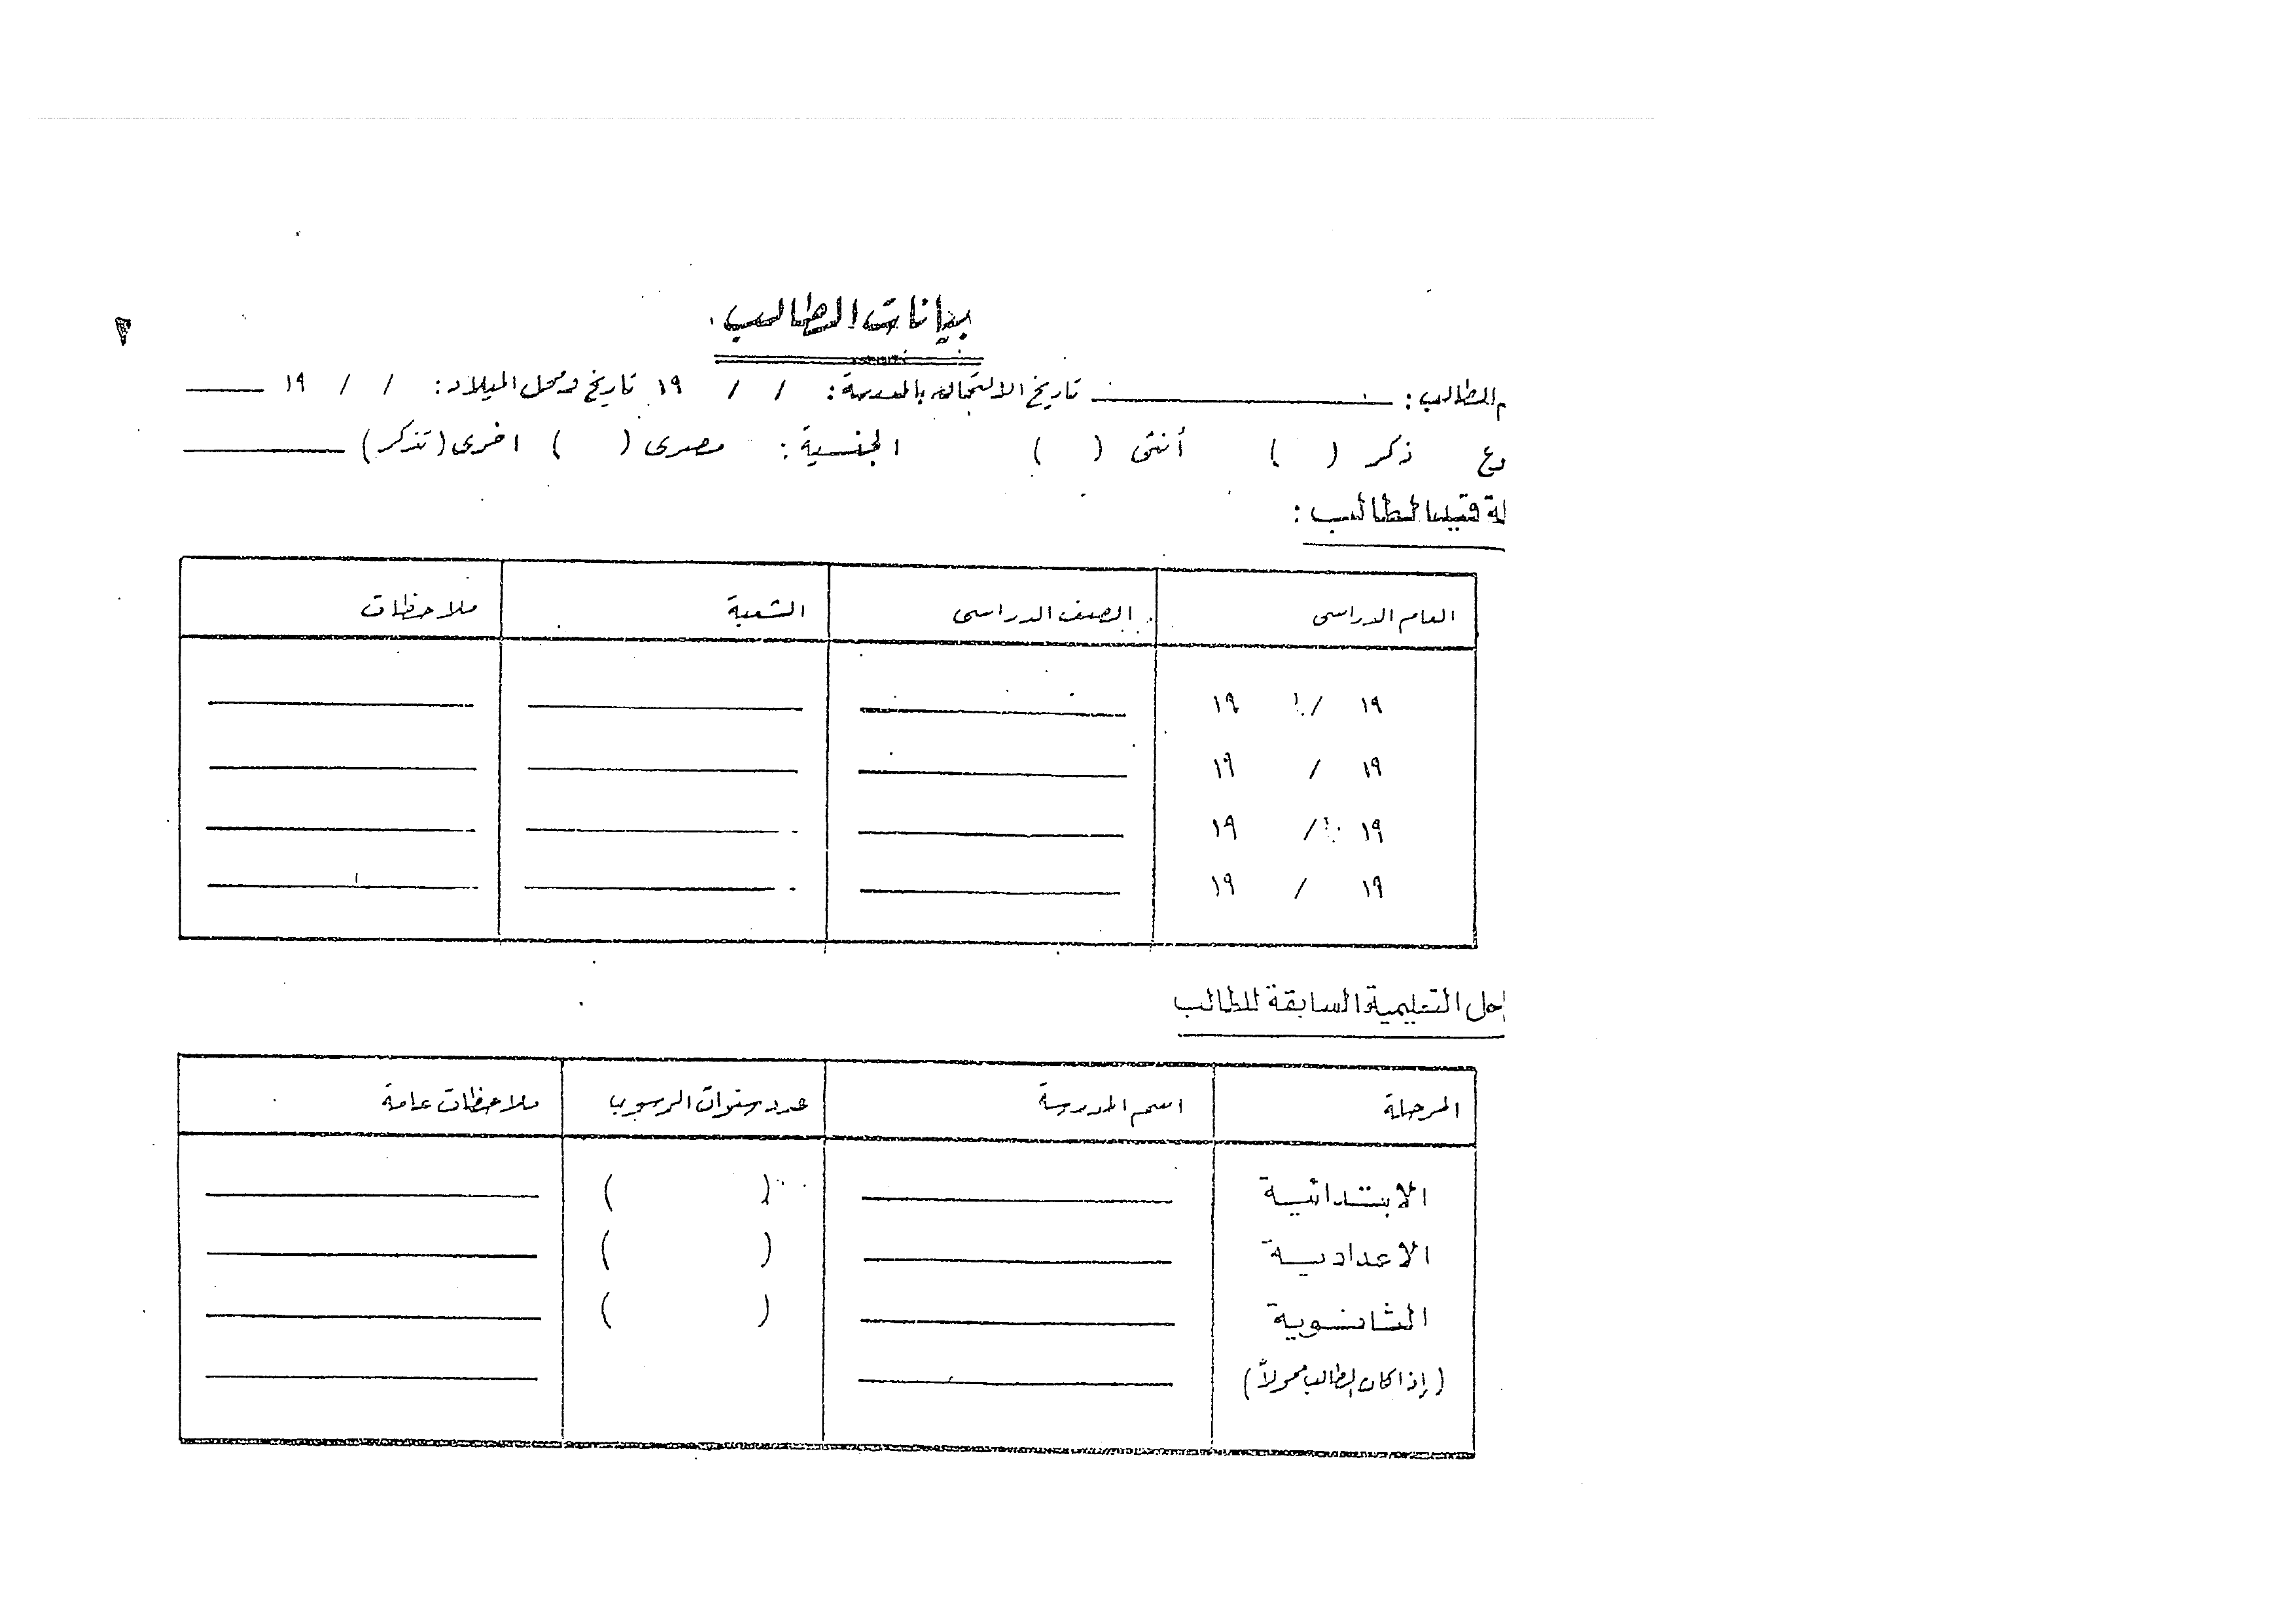 بيانات الطالب
م الطالب : ــــــــ تاريخ الالتحاق بالمدرسة : / / ١٩ تاريخ ومحل الميلاد : / / ١٩ ــــــــ
وع ذكر ( ) أنثى ( ) الجنسية : مصرى ( ) اخرى (تذكر) ــــــــ
لة قيد الطالب :
العام الدراسى الصف الدراسى الشعبة ملاحظات
١٩ / ١٩
١٩ / ١٩
١٩ / ١٩
١٩ / ١٩
احل التعليمية السابقة للطالب
المرحلة اسم المدرسة عدد سنوات الرسوب ملاحظات عامة
الابتدائية ( )
الاعدادية ( )
الثانوية ( )
(إذا كان الطالب محولاً)